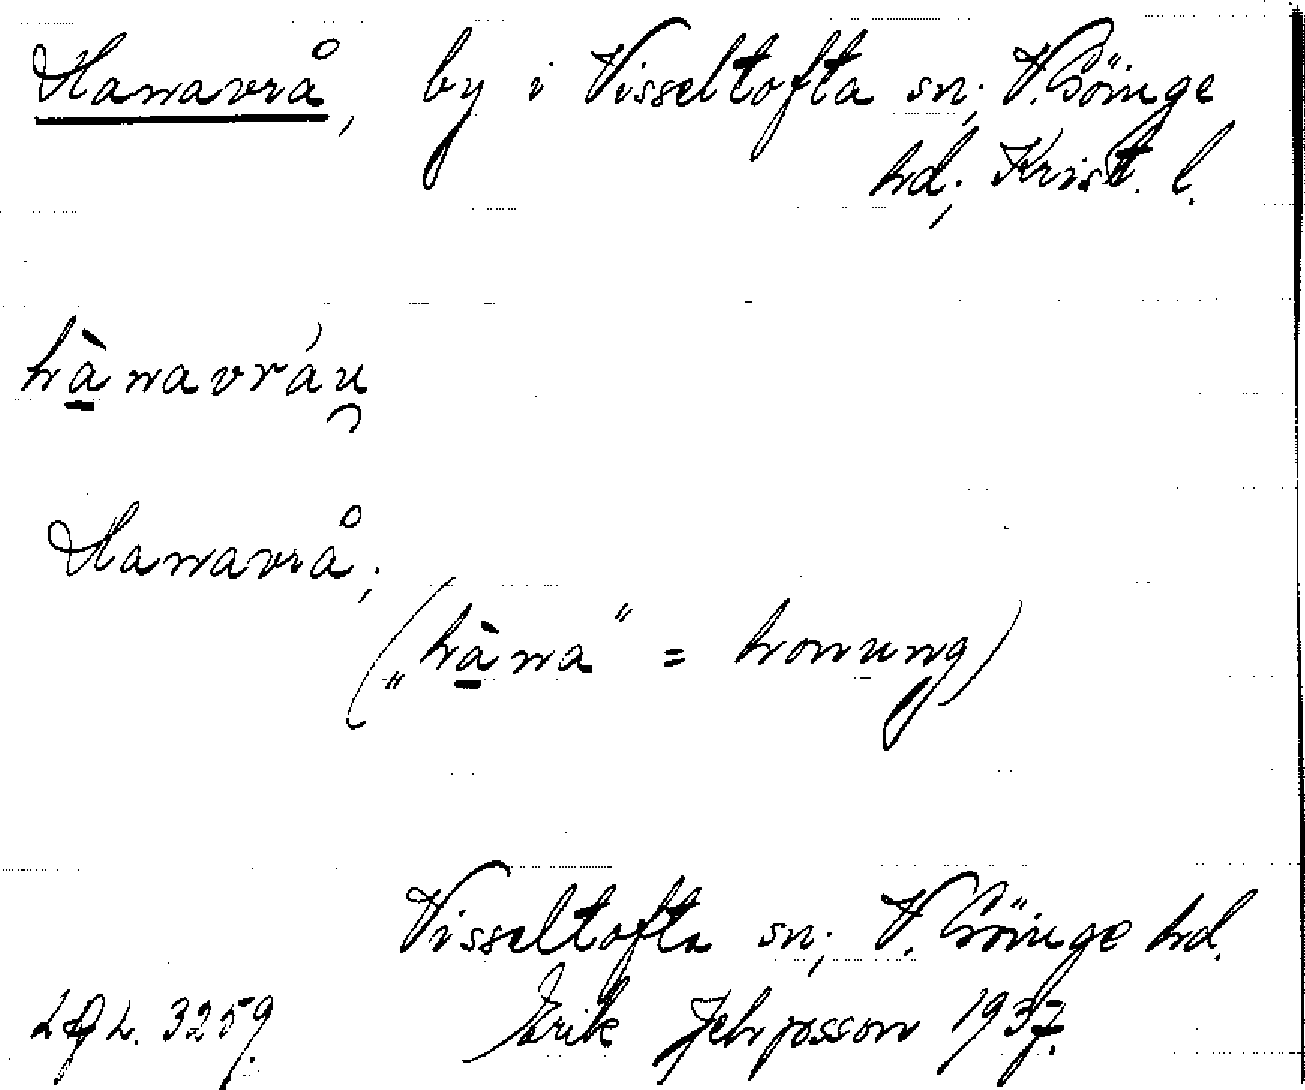 Hanavrå, by i Visseltofta sn; V. Göinge
hd; Krist. l.
hà̱navráu̯
Hanavrå;
(„hà̱na“ = honung)
Visseltofta sn; V. Göinge hd.
3259. Erik 1937.